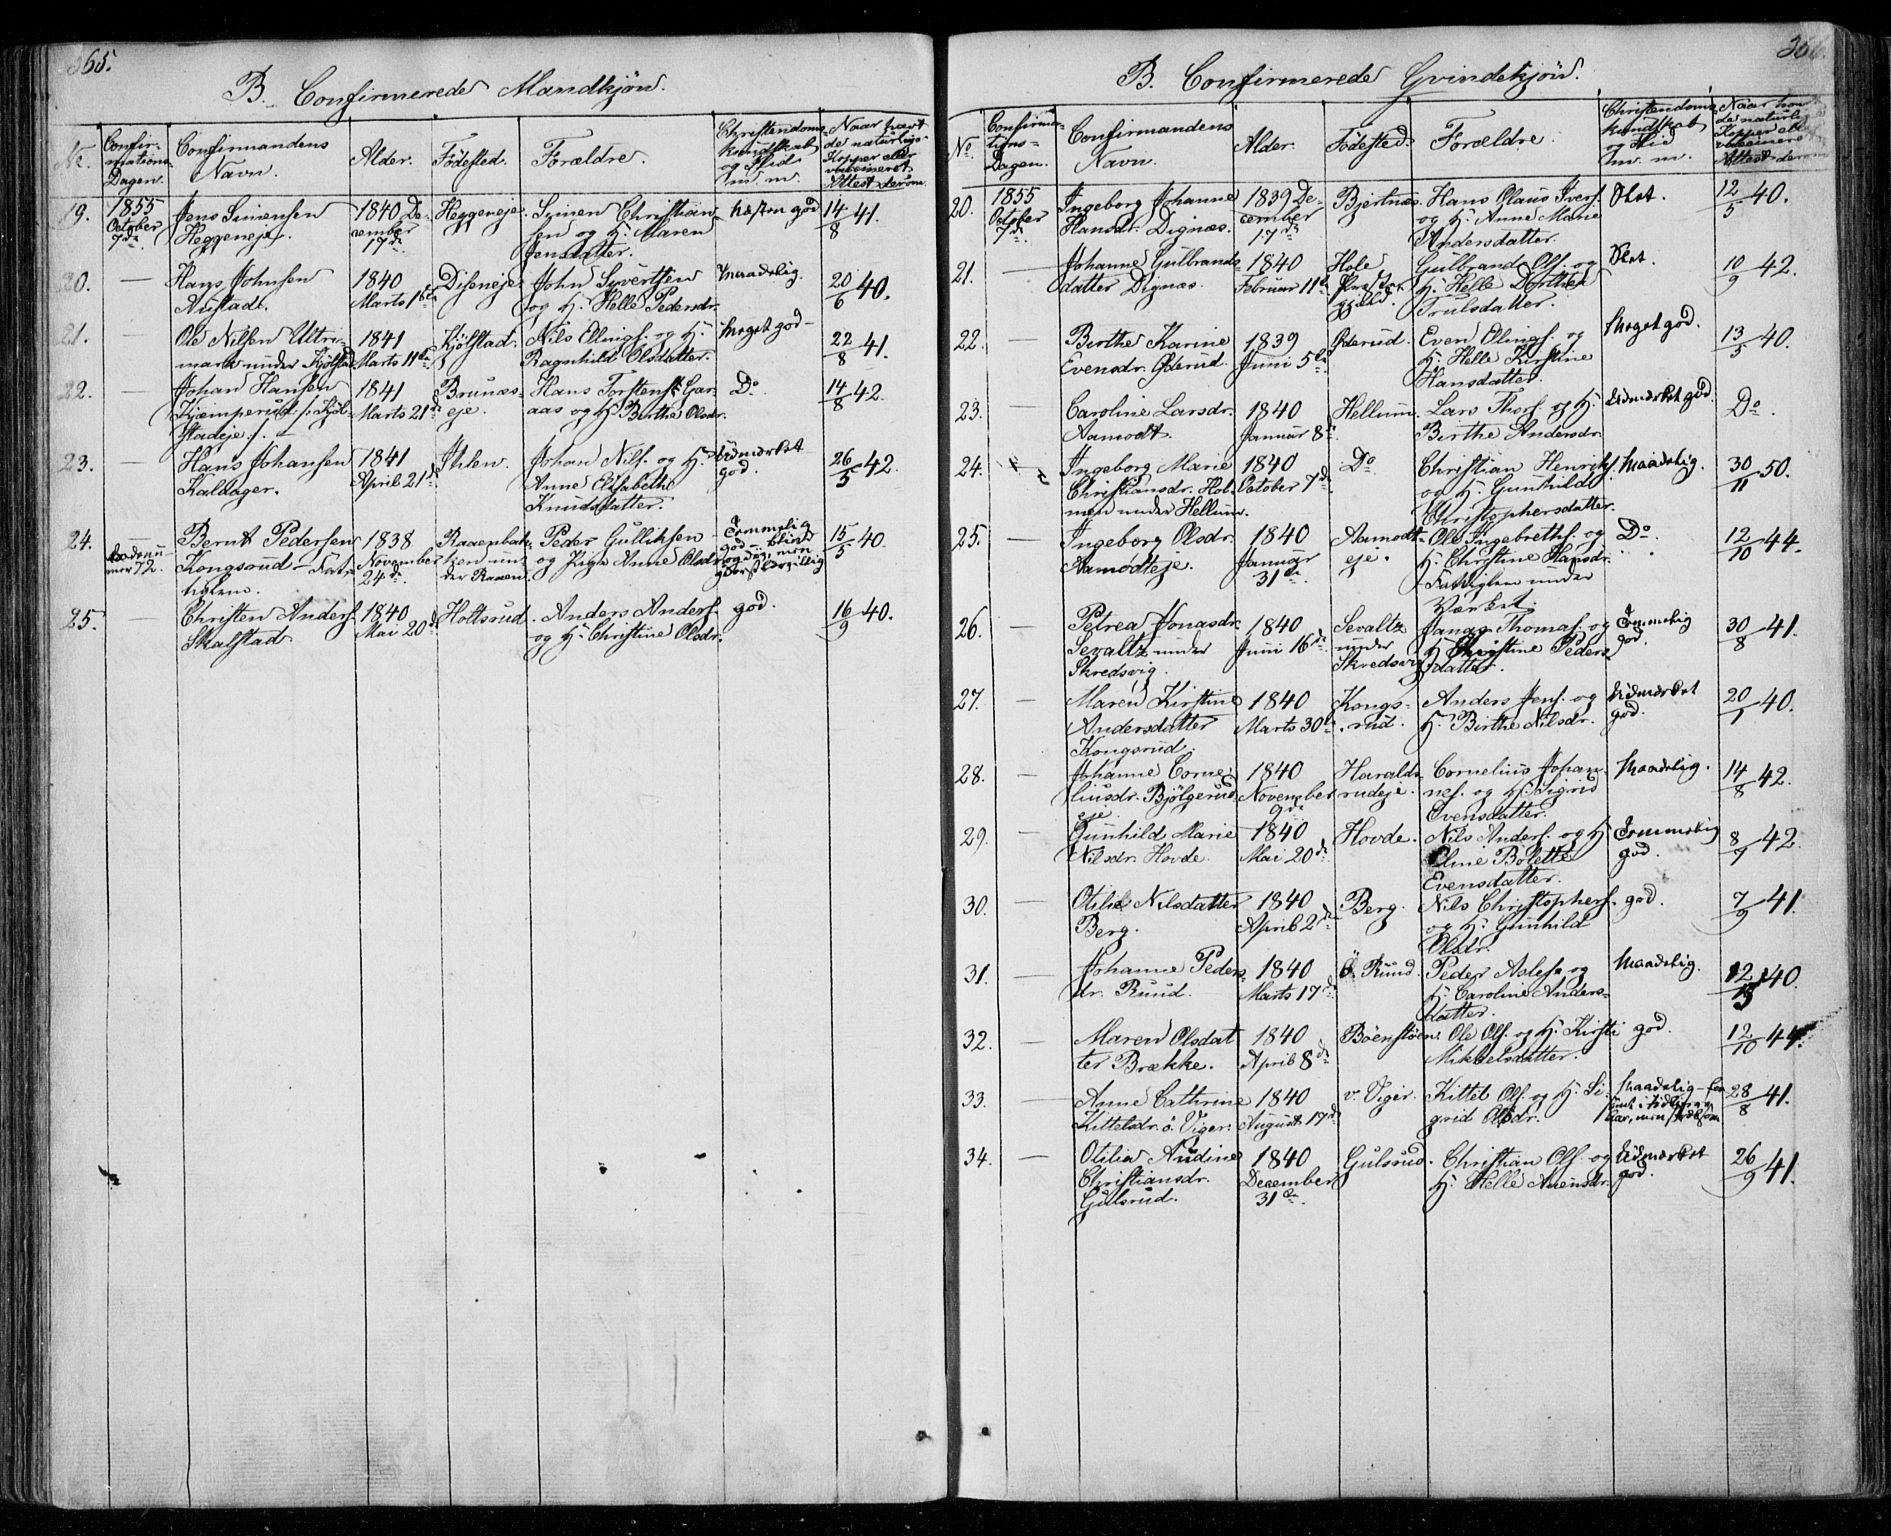 365.
B. Confirmerede Mandkjøn.
No. Confir-mations Dagen. Confirmandens Navn. Alder. Födested. Forældre. Christendoms-kundskab og Flid m. m. Naar havt de naturlige Kopper eller vaccineret. Attest derom.
19. 1855 October 7de. Jens Simensen Heggeneje. 1840 December 17de Heggeneje. Simen Christiansen og H. Maren Jensdatter. Næsten god 14/8 41.
20. — Hans Johnsen Austad. 1840 Marts 1ste Diseneje. John Syvertsen og H. Helle Pedersdr. Maadelig. 20/6 40.
21. — Ole Nilsen Ultrimark under Kjölstad 1841 Marts 11te Kjölstad. Nils Ellingf. og H. Ragnhild Olsdatter. Meget god — 22/8 41.
22. — Johan Hansen Kjæmperud /: Kjölstadeje :/. 1841 Marts 21de Brunæs-eje. Hans Torstenf. Garaas og H. Birthe Olsdr. Do. 14/8 42.
23. — Hans Johansen Kaldager. 1841 April 21de Ihlen. Johan Nilf. og H. Anne Elisabeth Knudsdatter. Udmærket god. 26/5 42.
24. Bernt Pedersen Kongsrud — 1838 November 24de Raaenbakken under Raaen. Peder Gulliksen og Anne Olsdr. Temmelig god — blind 15/5 40.
25. — Christen Andersf. Skalstad 1840 Mai 20de Holtsrud. Anders Andersf. og H. Christine Olsdr. god. 16/9 40.
366.
B. Confirmerede Qvindekjön.
No. Confirma-tions-Dagen. Confirmandens Navn. Alder. Födested. Forældre. Christendoms kundskab og Flid m. m. Naar havt de naturlig Kopper ell vaccineret Attest derom
20. 1855 October 7de. Ingeborg Johanne Hansdr. Dignæs. 1839 December 17de Bjertnæs. Hans Olaus Iverf. og H. Anne Marie Andersdatter. Slet. 12/5 40.
21. — Johanne Gulbrandsdatter Dignæs. 1840 Februar 11te Hole Præstegjeld. Gulbrand Olf. og H. Helle Dorthea Trulsdatter. Slet. 10/9 42.
22. — Birthe Karine Evensdr. Öderud. 1839 Juni 5te Öderud. Even Ellingf. og H. Helle Kirstine Hansdatter. Meget god. 13/5 40.
23. — Caroline Larsdr. Aamodt. 1840 Januar 8de Hellum. Lars Thorf. og H. Birthe Andersdr. Udmærket god. Do.
24. Ingeborg Marie Christiansdr. Holmen under Hellum. 1840 October 7de Do Christian Henrikf. og H. Gunhild Christophersdatter. Maadelig. 30/11 50.
25. — Ingeborg Olsdr. Aamodteje. 1840 Januar 31te Aamodt-eje. Ole Ingebrethf. og H. Christine Hansdr. under Værket. Do. 12/10 44.
26. — Petrea Jonasdr. Sevaltz under Skredsvig. 1840 Juni 16de Sevaltz under Skredsvig Jonas Thomaf. og H. Christine Pedersdatter. Temmelig god. 30/8 41.
27. — Maren Kirstine Andersdatter Kongsrud. 1840 Marts 30te Kongs-rud. Anders Jenf. og H. Birthe Nilsdr. Udmærket god. 20/1 40.
28. — Johanne Corneliusdr. Bjölgerudeje 1840 November 9de Haralds-rudeje. Cornelius Johannef. og H. Sigrid Svensdatter. Maadelig. 14/8 42.
29. — Gunhild Marie Nilsdr. Hovde. 1840 Mai 20de Hovde. Nils Andersf. og H. Bolette Evensdatter. Temmelig god. 8/9 42.
30. — Otilie Nilsdatter Berg. 1840 April 2de Berg. Nils Christopherf. og H. Gunhild Olsdr. god. 7/9 41.
31. — Johanne Pedersdr. Ruud. 1840 Marts 17de Ö. Ruud. Peder Aslesf. og H. Caroline Andersdatter. Maadelig. 12/5 40.
32. — Maren Olsdatter Brække. 1840 April 8de Böenstöen. Ole Olf. og H. Kirsti Mikkelsdatter. god. 12/10 44.
33. — Anne Cathrine Kittelsdr. ö. Viger. 1840 August 17de v. Viger. Kittel Olf. og H. Sigrid Olsdr. Maadelig — 28/8 41.
34. — Otilia Andine Christiansdr. Gulsrud. 1840 December 31te. Gulsrud. Christian Olf. og H. Helle Auensdr. Udmærket god. 26/9 41.